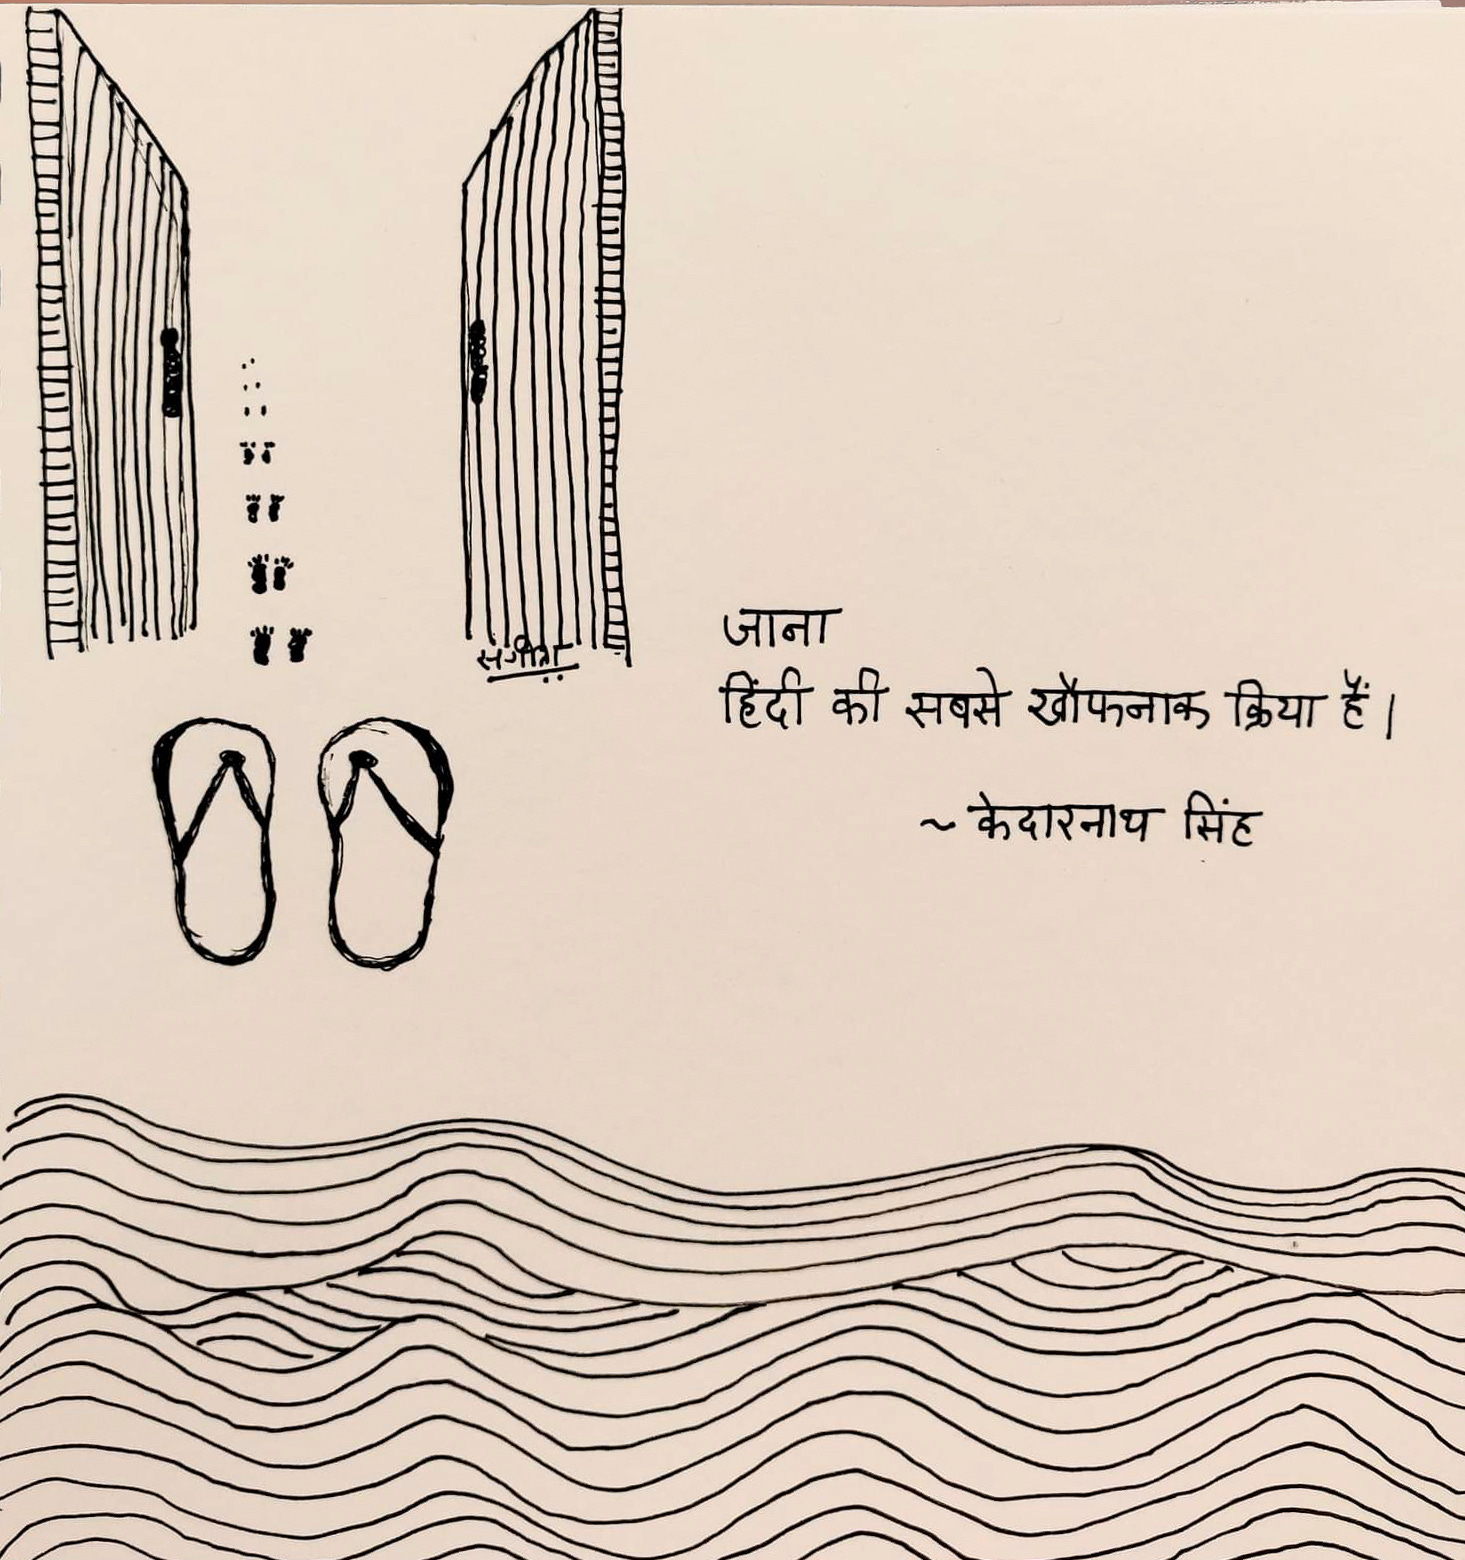 जाना
हिंदी की सबसे खौफनाक क्रिया हैं।
~ केदारनाथ सिंह